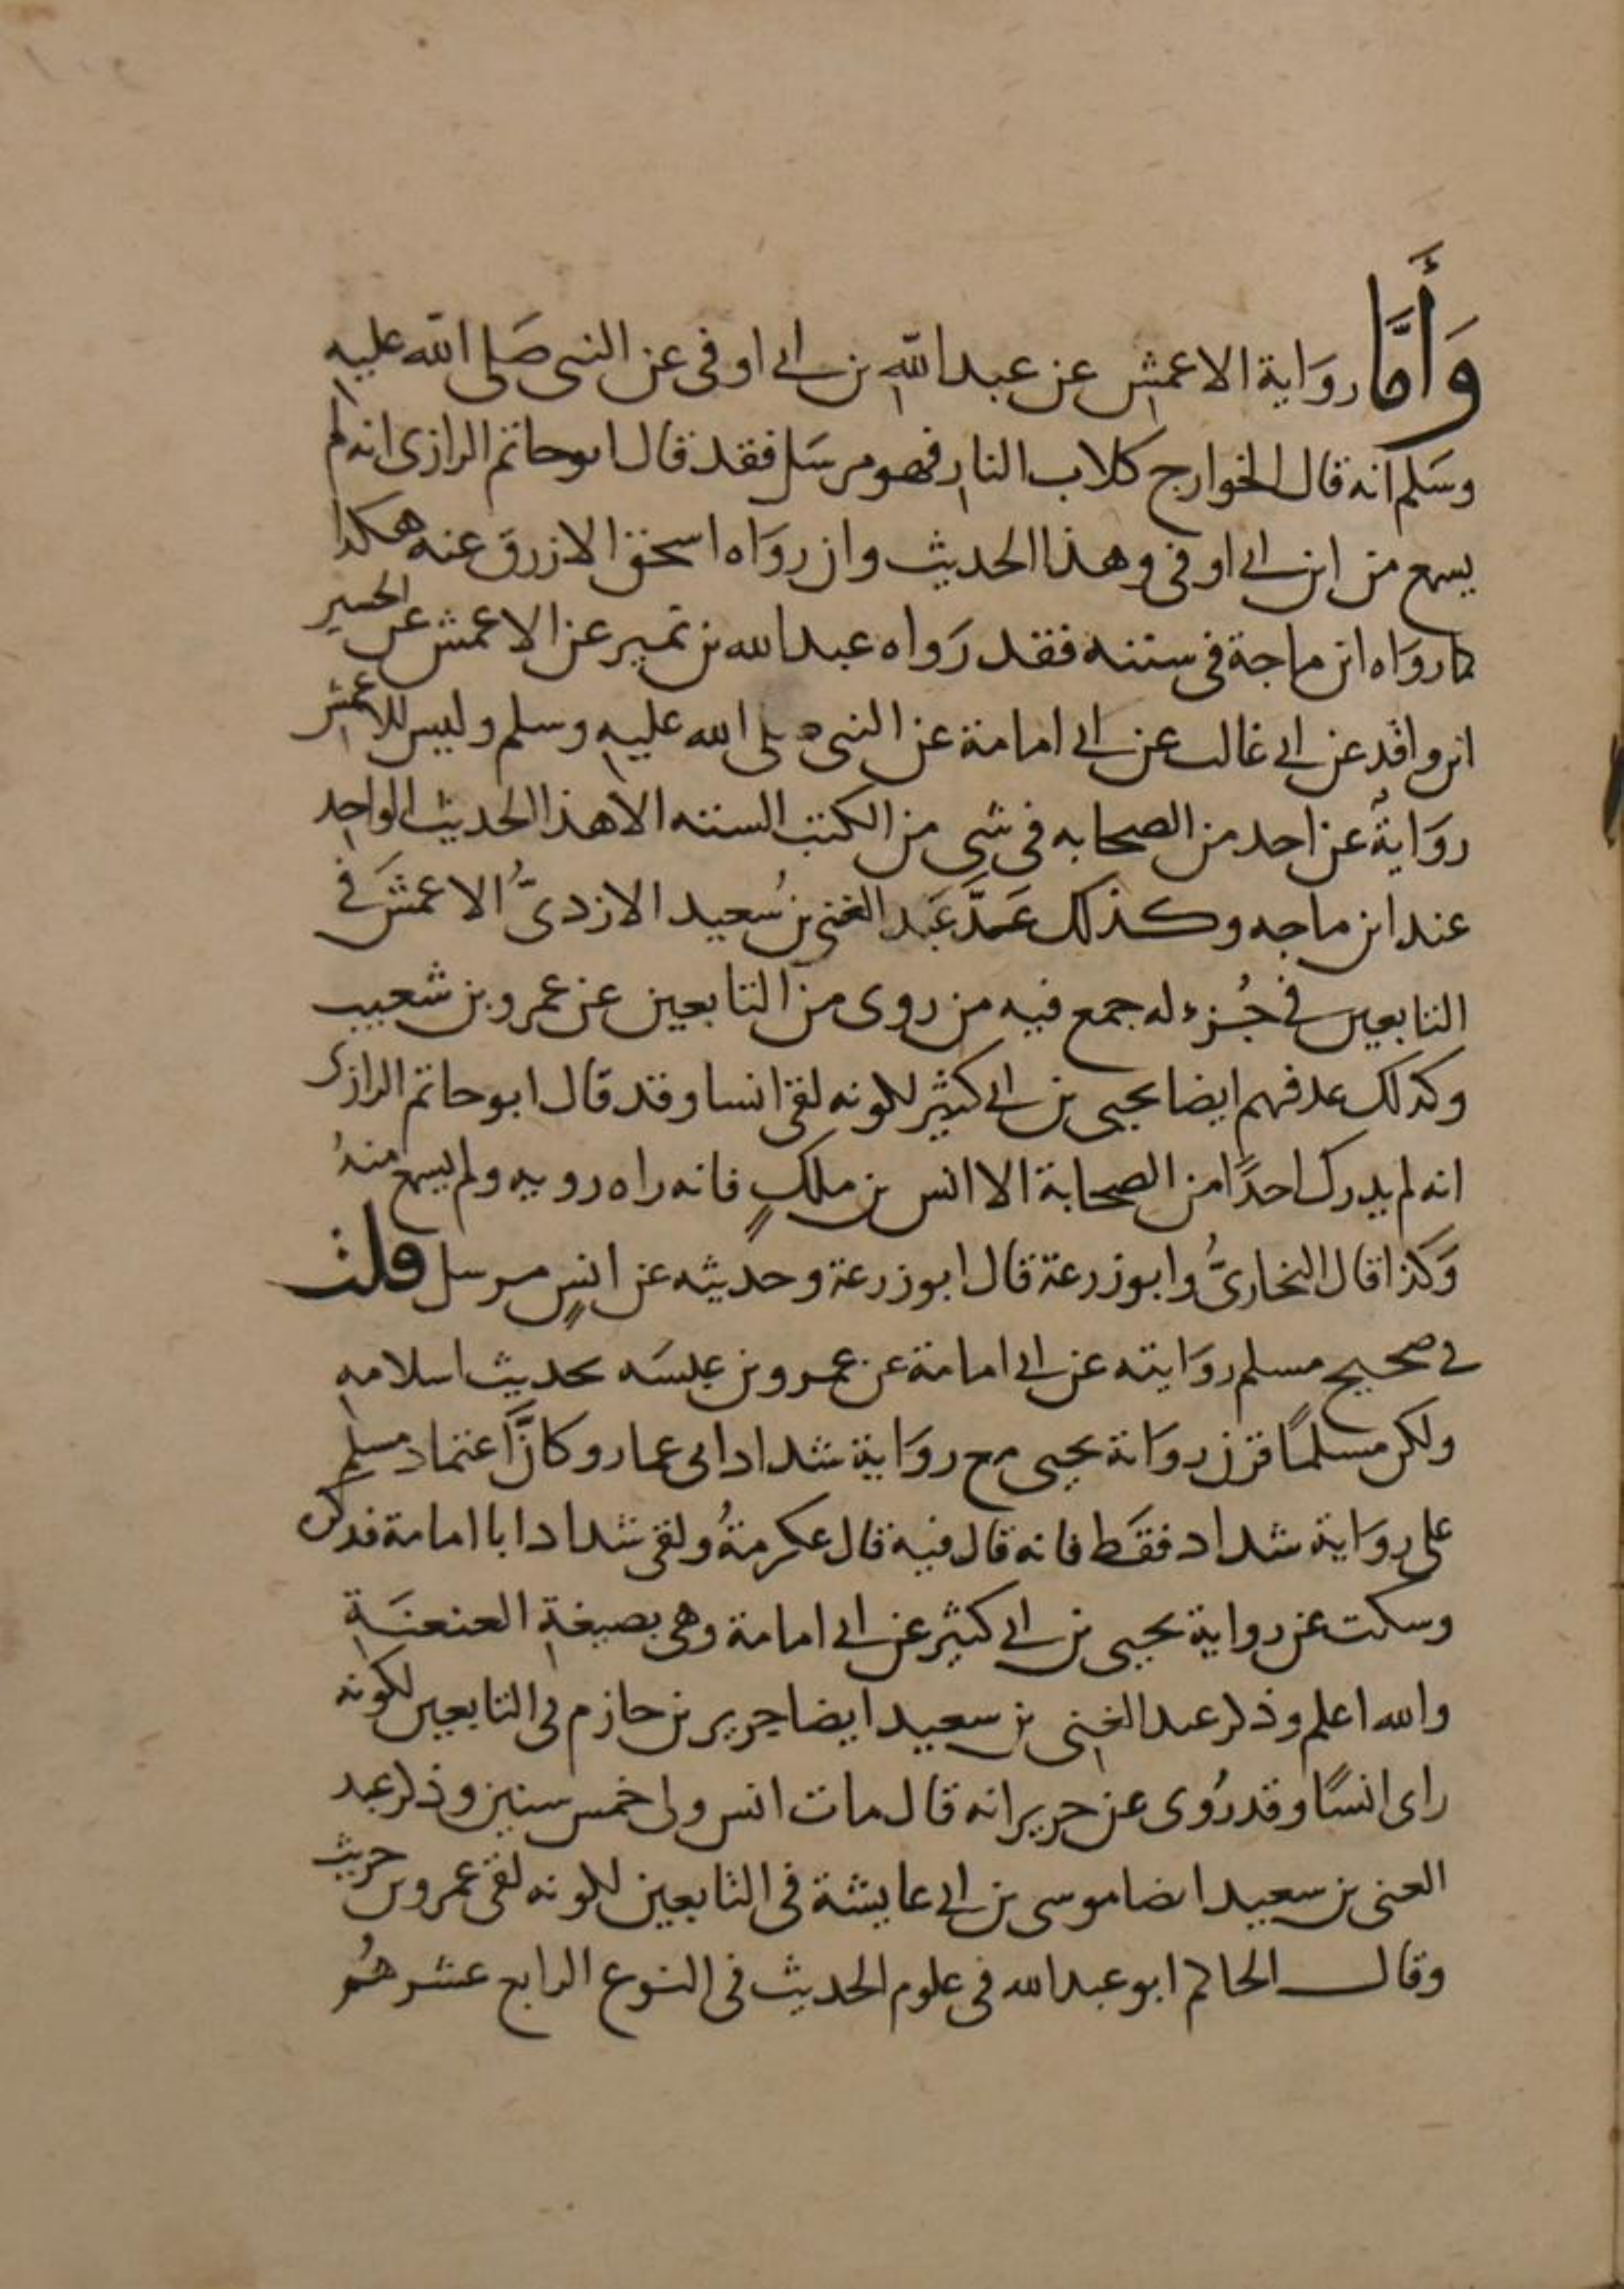 وَأَمَّا رِوَاية الاعمشِ عن عبد اللّهِ بن ابي اوفى عن النبى صَلى اللّه عليهِ
وسَلم انه قال الخوارج كلاب النارِ فهو مرسَل فقد قال ابو حاتم الرازى انه لم
يسمع من ابن ابي اوفى وهذا الحديث وان روَاه اسحق الازرق عنه هكذا
كما روَاه ابن ماجة فى سننه فقد رَواه عبد الله بن نمير عن الاعمش عن الحسين
ابن واقد عن ابي غالب عن ابي امامة عن النبى صلى الله عليهِ وسلم وليس للاعمش
روَايةٌ عن احد من الصحابه فى شى من الكتب السته الا هذا الحديث الواحِد
عند ابن ماجه وكذلك عَدَّ عَبد الغنى بن سُعيد الازدىُّ الاعمَشَ في
التابعين في جُزء له جمع فيه من روى من التابعين عن عمرو بن شعيب
وكذلك عد فيهم ايضا يحيى بن ابي كثير لكونه لقى انسا وقد قال ابو حاتم الرازى
انه لم يدرك احدًا من الصحابة الا انس بن ملكٍ فانه راه روية ولم يسمع منهُ
وَكذا قال البخارىُّ وابو زرعة قال ابو زرعة وحديثه عن انسٍ مرسل قلت
في صحيح مسلم روَايته عن ابي امامة عن عمرو بن عبسَه بحديث اسلامهِ
ولكن مسلمًا قرن روَاية يحيى مع روَاية شداد ابى عمار وكانَّ اعتماد مسلمٍ
على روَاية شداد فقَط فانه قال فيه قال عكرمةُ ولقى شداد ابا امامة فذكره
وسكت عن رواية يحيى بن ابي كثير عن ابي امامة وهى بصيغةِ العنعنَةِ
والله اعلم وذكر عبد الغنى بن سعيد ايضا جرير بن حازم فى التابعين لكونه
راى انسًا وقد رُوى عن جرير انه قال مات انس ولى خمس سنين وذكر عبد
الغنى بن سعيد ايضا موسى بن ابي عايشة فى التابعين لكونه لقى عمرو بن حريث
وقال الحاكم ابو عبد الله فى علوم الحديث فى النوع الرابع عشر هُم